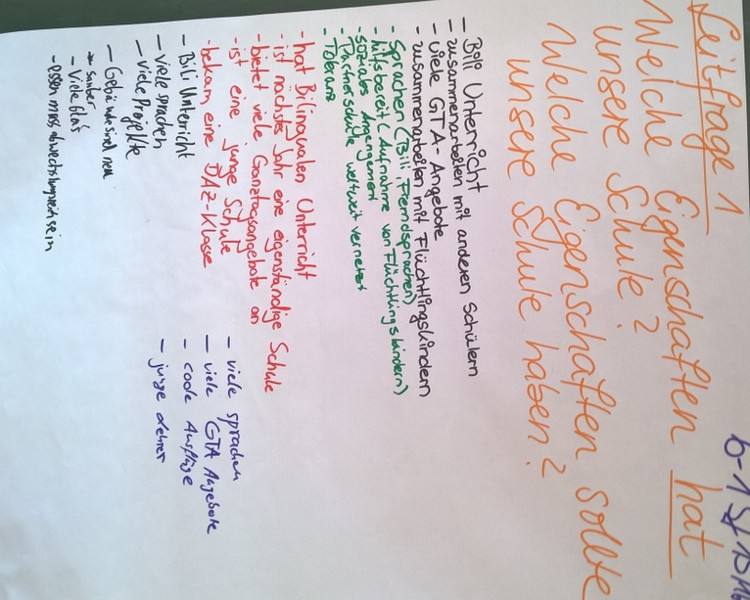 Leitfrage 1
Welche Eigenschaften hat
unsere Schule?
Welche Eigenschaften sollte
unsere Schule haben?
- Bili Unterricht
- zusammenarbeiten mit anderen Schülern
- viele GTA-Angebote
- zusammenarbeiten mit Flüchtlingskindern
- Sprachen (Bili, Fremdsprachen)
- hilfsbereit (Aufnahme von Flüchtlingskindern)
- soziales Engangement
- Partnerschule weltweit vernetzt
- Toleranz
- hat Bilingualen Unterricht
- ist nächstes Jahr eine eigenständige Schule
- bietet viele Ganztagsangebote an
- ist eine junge Schule
- bekam eine DAZ-Klasse
- Bili Unterricht
- viele sprachen
- viele Projekte
- Gebäude sind neu
- sauber
- Viele Gta's
- essen muss abwechslungsreich sein
- viele sprachen
- viele GTA Angebote
- coole Ausflüge
- junge Lehrer